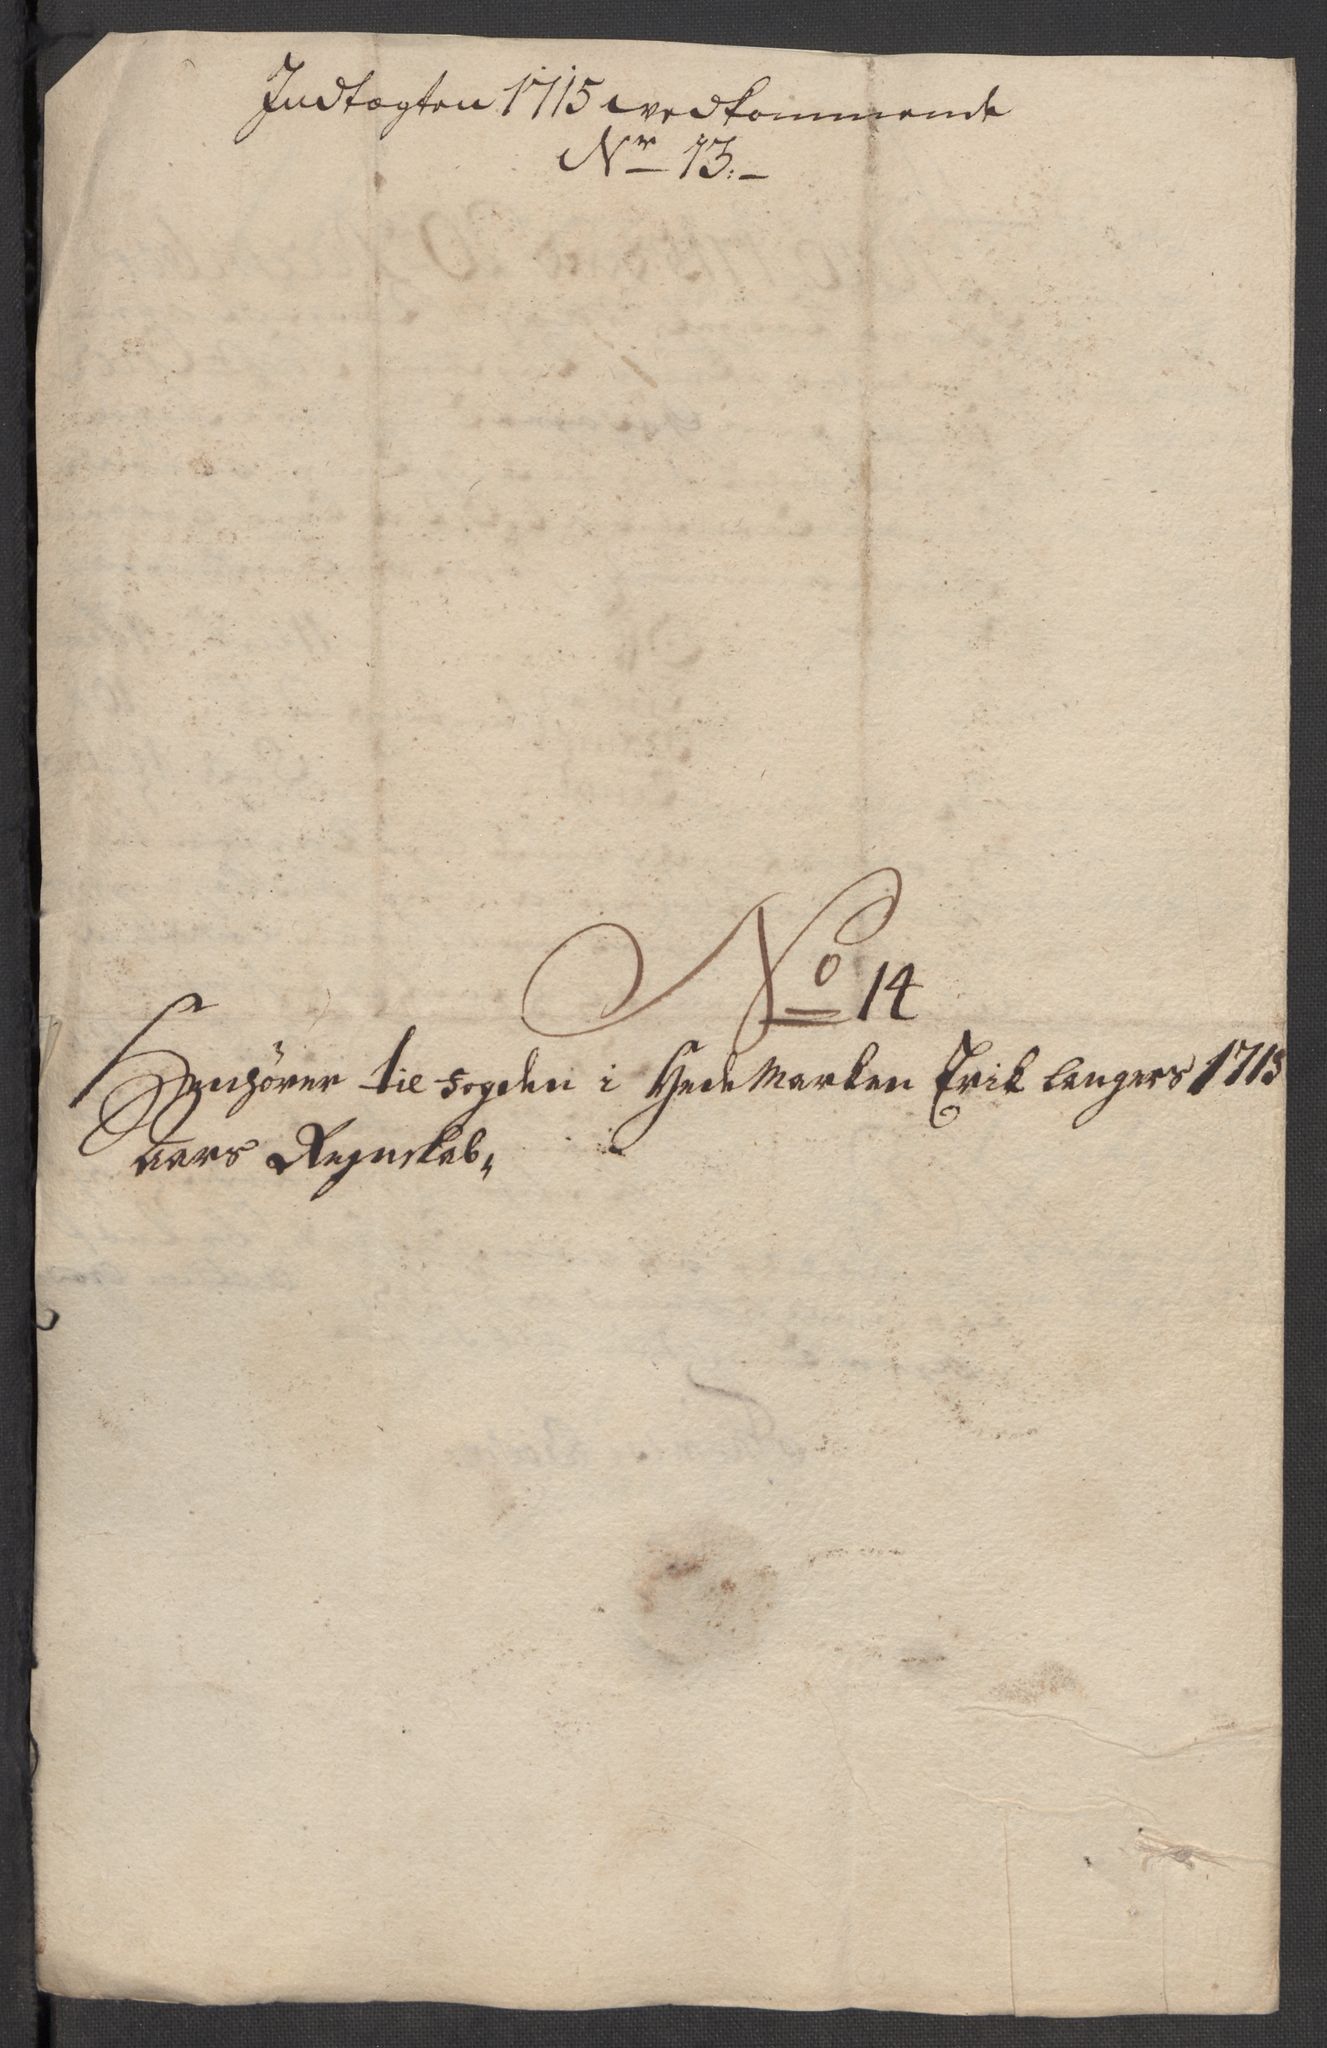 Indtægten 1715 vedkommende
Nr 13.
No 14
Henhörer til fogden i Hedemarken Erik langers 1715
aars Regnskab,